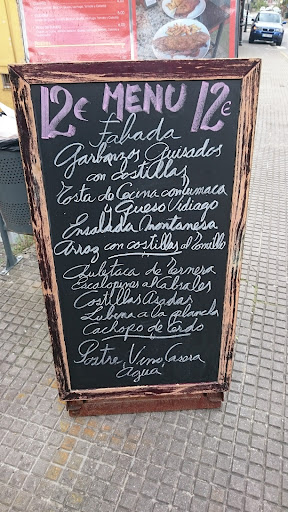 12€ MENU 12€
Fabada
Garbanzos Guisados
con costillas
Tosta de Cecina con rumaca
y Queso Vidiago
Ensalada Montañesa
Arroz con costillas al Tomillo
Chuletaca de Ternera
Escalopines al Cabrales
Costillas Asadas
Lubina a la plancha
Cachopo de Cerdo
Postre Vino, Casera
Agua